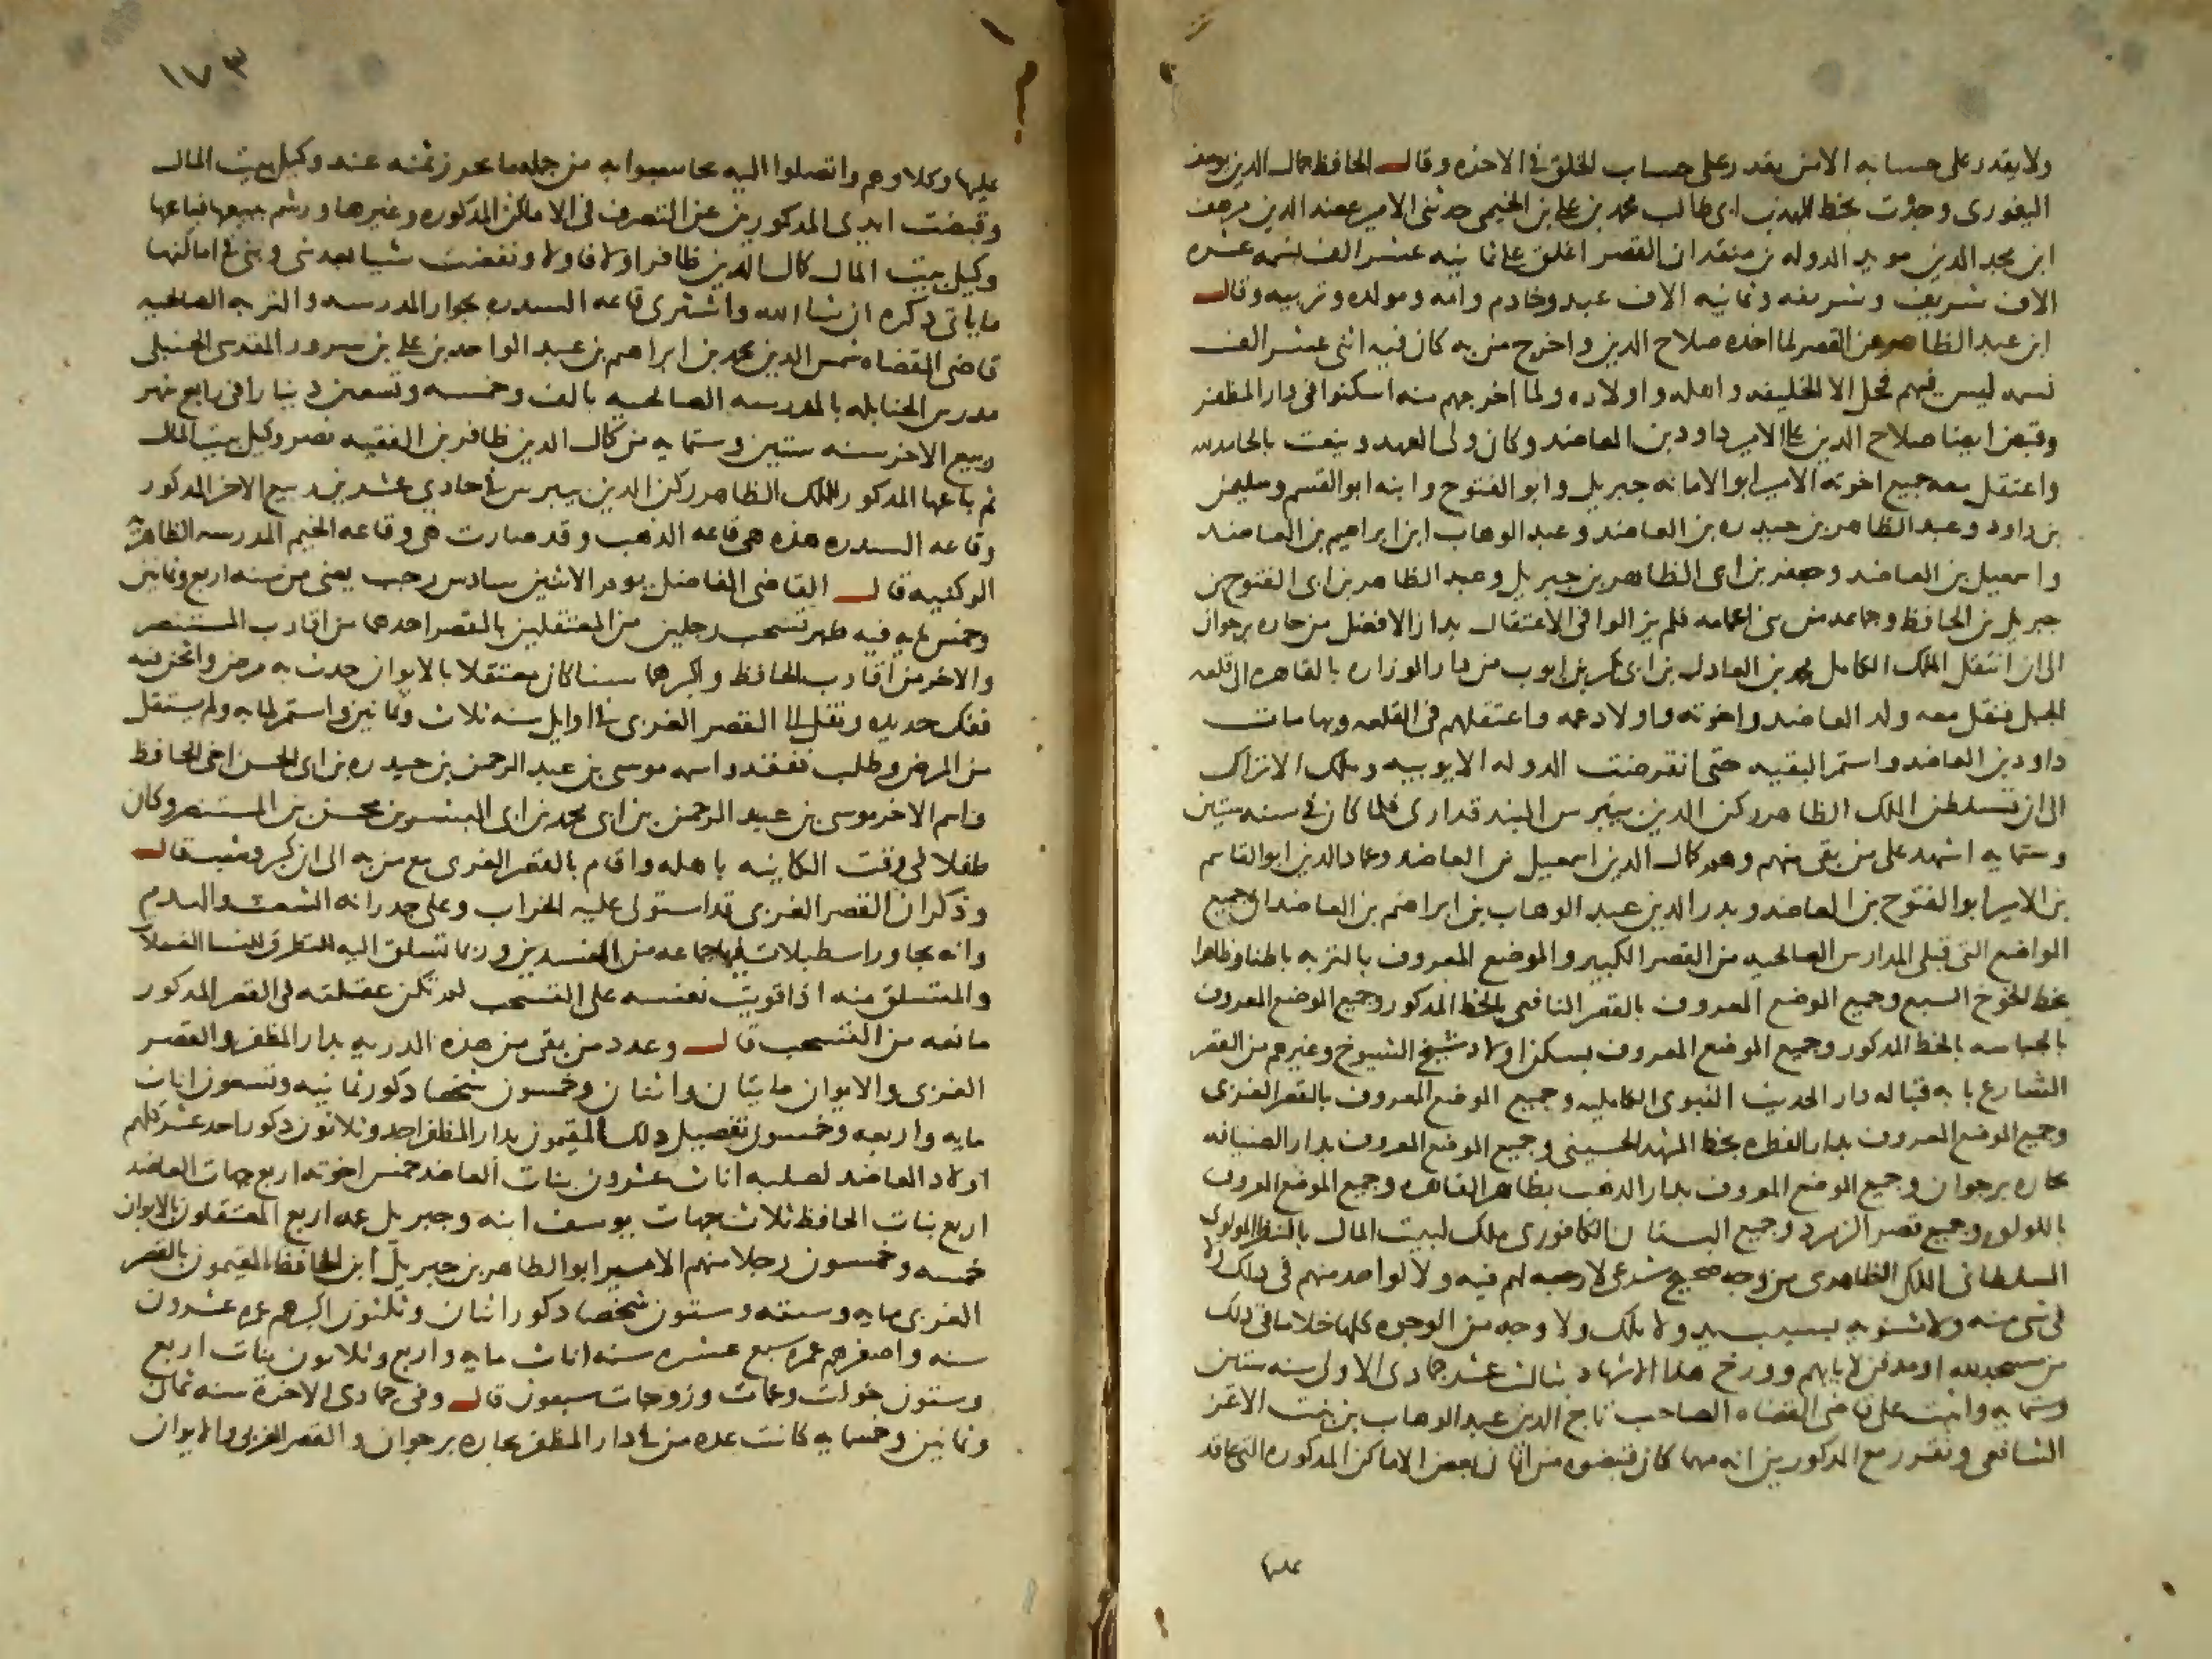 ولا يقدر على حسابه الا من يقدر على حساب الخلق في الاخره وقال الحافظ جمال الدين يوسف
اليغموري وجدت بخط المهذب ابي طالب محمد بن علي بن الخيمي حدثني الامير عضد الدين مرهف
ابن مجد الدين مويد الدوله بن منقد ان القصر اغلق على ثمانيه عشر الف نسمه عشره
الاف شريف وشريفه وثمانيه الاف عبد وخادم وامه ومولده وتربيه وقال
ابن عبد الظاهر عن القصر لما اخده صلاح الدين واخرج من به كان فيه اثني عشر الف
نسمه ليس فيهم فحل الا الخليفه واهله واولاده ولما اخرجهم منه اسكنوا في دار المظفر
وقبض ايضا صلاح الدين على الامير داود بن العاضد وكان ولي العهد وينعت بالحامد لله
واعتقل معه جميع اخوته الامير ابو الامانه جبريل وابو الفتوح وابنه ابو القسم وسليمن
بن داود وعبد الظاهر بن حيدره بن العاضد وعبد الوهاب ابن ابراهيم بن العاضد
واسمعيل بن العاضد وجعفر بن ابي الظاهر بن جبريل وعبد الظاهر بن ابي الفتوح بن
جبريل بن الحافظ وجماعه من بني اعمامه فلم يزالوا في الاعتقال بدار الافضل من حاره برجوان
الى ان انتقل الملك الكامل محمد بن العادل بن ابي بكر بن ايوب من دار الوزاره بالقاهره الى قلعه
الجبل فنقل معه ولد العاضد واخوته واولاد عمه واعتقلهم في القلعه وبها مات
داود بن العاضد واستمر البقيه حتى انقرضت الدوله الايوبيه وملك الاتراك
الى ان تسلطن الملك الظاهر ركن الدين بيبرس البندقداري فلما كان في سنه ستين
وستمايه اشهد على من بقى منهم وهم كمال الدين اسمعيل بن العاضد وعماد الدين ابو القاسم
بن الامير ابو الفتوح بن العاضد وبدر الدين عبد الوهاب بن ابراهيم بن العاضد ان جميع
المواضع التي قبلي المدارس الصالحيه من القصر الكبير والموضع المعروف بالتربه باطنا وظاهرا
بخط الخوخ السبع وجميع الموضع المعروف بالقصر النافعي بالخط المدكور وجميع الموضع المعروف
بالجباسه بالخط المدكور وجميع الموضع المعروف بسكن اولاد شيخ الشيوخ وغيرهم من القصر
الشارع بابه قباله دار الحديث النبوي الكامليه وجميع الموضع المعروف بالقصر الغربي
وجميع الموضع المعروف بدار الفطره بخط المشهد الحسيني وجميع الموضع المعروف بدار الضيافه
بحاره برجوان وجميع الموضع المعروف بدار الذهب بظاهر القاهره وجميع الموضع المعروف
باللولوه وجميع قصر الزمرد وجميع البستان الكافوري ملك لبيت المال بالنظر المولوي
السلطاني الملكي الظاهري من وجه صحيح شرعي لا رجعه لهم فيه ولا لواحد منهم في ذلك ولا
في شي منه ولا مثنويه بسبب يد ولا ملك ولا وجه من الوجوه كلها خلا ما في ذلك
من مسجد لله او مدفن لابايهم وورخ هدا الاشهاد ثالث عشر جمادى الاولى سنه ستين
وستمايه واثبت على قاضي القضاه الصاحب تاج الدين عبد الوهاب بن بنت الاعز
الشافعي وتقرر مع المدكورين انه مهما كان قبضوه من اثمان بعض الاماكن المدكوره التي عاقد
عليها
١٧٣
عليها وكلاوهم واتصلوا اليه يحاسبوا به من جمله ما يحرز ثمنه عند وكيل بيت المال
وقبضت ايدي المدكورين عن التصرف في الاماكن المدكوره وغيرها ورسم ببيعها فباعها
وكيل بيت المال كمال الدين ظافر اولا فاولا ونقضت شيا بعد شي وبني في اماكنها
ما ياتي دكره ان شا الله واشترى قاعه السدره بجوار المدرسه والتربه الصالحيه
قاضي القضاه شمس الدين محمد بن ابراهيم بن عبد الواحد بن علي بن سرور المقدسي الحنبلي
مدرس الحنابله بالمدرسه الصالحيه بالف وخمسه وتسعين دينارا في رابع شهر
ربيع الاخر سنه ستين وستمايه من كمال الدين ظافر بن الفقيه نصر وكيل بيت المال
ثم باعها المدكور للملك الظاهر ركن الدين بيبرس في حادي عشرين ربيع الاخر المدكور
وقاعه السدره هذه هي قاعه الذهب وقد صارت هي وقاعه الخيم المدرسه الظاهريه
الركنيه قال القاضي الفاضل يوم الاثنين سادس رجب يعني من سنه اربع وثمانين
وخمس مايه فيه ظهر تسحب رجلين من المعتقلين بالقصر احدهما من اقارب المستنصر
والاخر من اقارب الحافظ واكبرهما سنا كان معتقلا بالايوان حدث به مرض واثخن فيه
ففك حديده ونقل الى القصر الغربي في اوايل سنه ثلاث وثمانين واستمر لما به ولم يستقل
من المرض وطلب ففقد واسمه موسى بن عبد الرحمن بن حيدره بن ابي الحسن اخي الحافظ
واسم الاخر موسى بن عبد الرحمن بن ابي محمد بن ابي اليسر بن محسن بن المستنصر وكان
طفلا في وقت الكاينه باهله واقام بالقصر الغربي مع من به الى ان كبر وشب قال
وذكر ان القصر الغربي قد استولى عليه الخراب وعلى جدرانه الشعث والهدم
وانه يجاور اسطبلات فيها جماعه من المفسدين وربما تسلق اليه للتطرق للنسا الفعلا
والمتسلق منه اذا قويت نفسه على التسحب لم تكن عقلته في القصر المدكور
مانعه من التسحب قال وعدد من بقى من هذه الدريه بدار المظفر والقصر
الغربي والايوان مايتان واثنان وخمسون شخصا دكور ثمانيه وتسعون اناث
مايه واربعه وخمسون تفصيل دلك المقيمون بدار المظفر احد وثلاثون دكور احد عشر كلهم
اولاد العاضد لصلبه اناث عشرون بنات العاضد خمس اخوته اربع جهات العاضد
اربع بنات الحافظ ثلاث جهات يوسف ابنه وجبريل عمه اربع المعتقلون بالايوان
خمسه وخمسون رجلا منهم الامير ابو الظاهر بن جبريل ابن الحافظ المقيمون بالقصر
الغربي مايه وسته وستون شخصا دكور اثنان وثلثون اكبرهم عمره عشرون
سنه واصغرهم عمره سبع عشره سنه اناث مايه واربع وثلاثون بنات اربع
وستون خوات وعمات وزوجات سبعون قال وفي جمادى الاخرة سنه ثمان
وثمانين وخمسمايه كانت عده من في دار المظفر بحاره برجوان والقصر الغربي والايوان